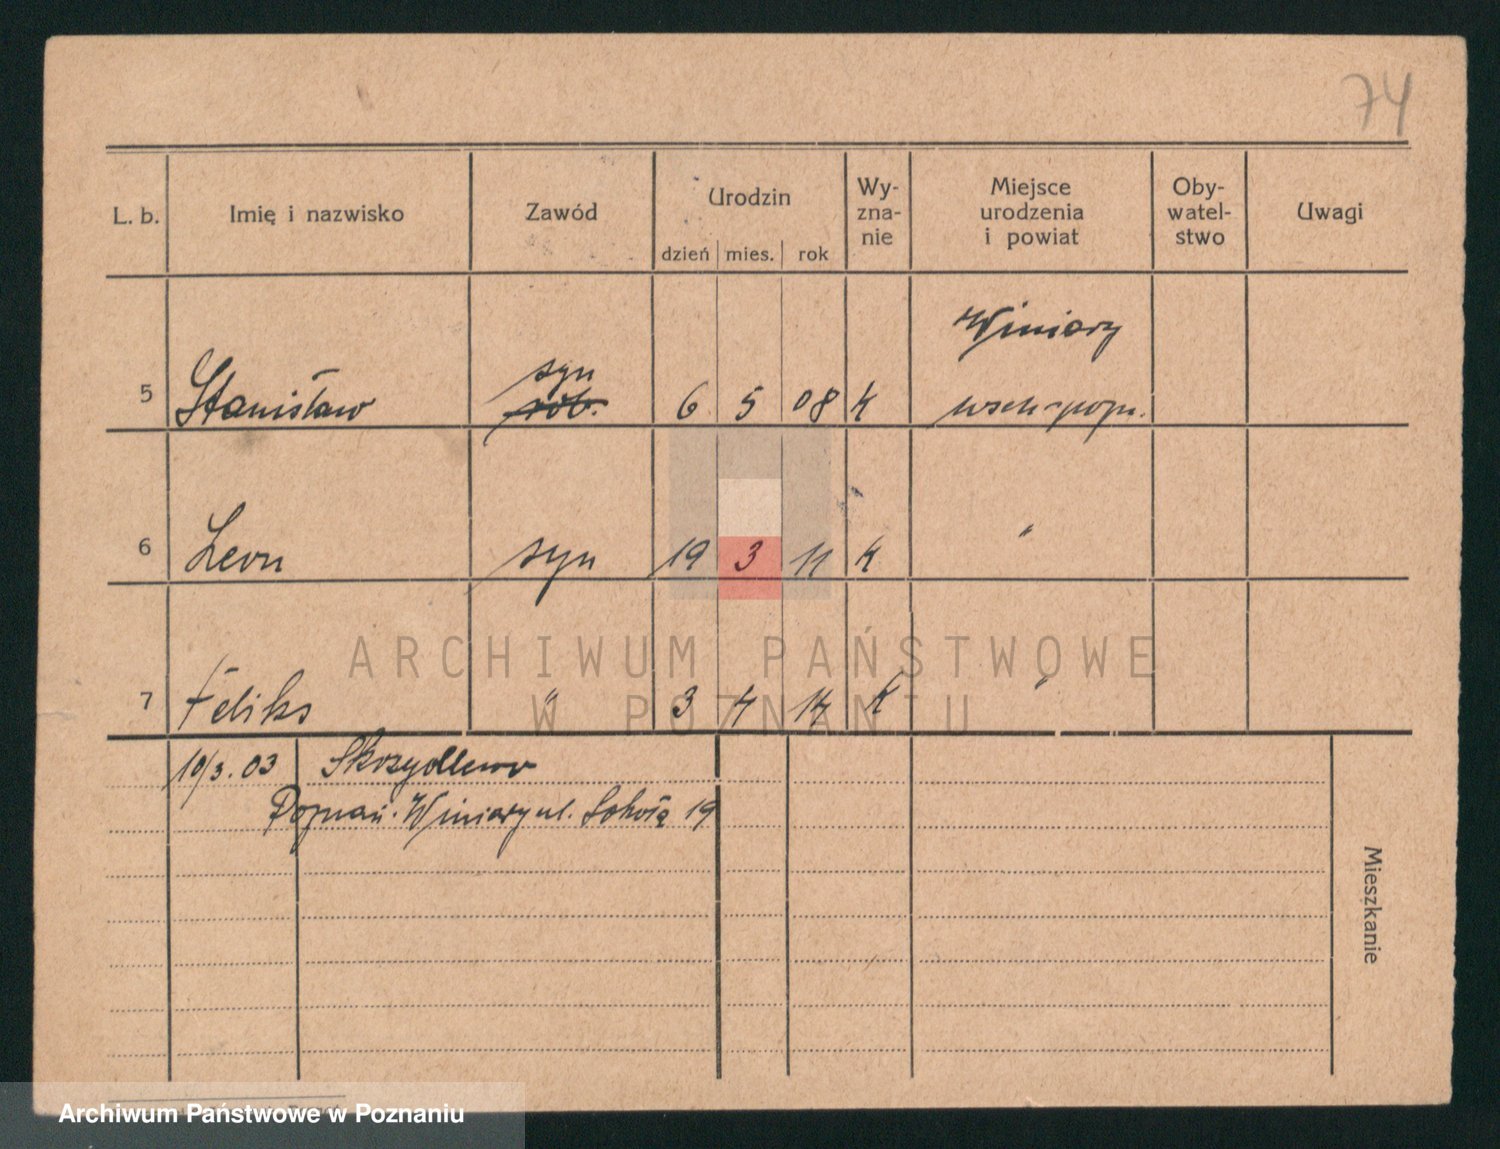 74
L. b. Imię i nazwisko Zawód Urodzin dzień mies. rok Wy-zna-nie Miejsce urodzenia i powiat Oby-watel-stwo Uwagi
Winiary
syn
5 Stanisław rob. 6 5 08 K wsch-pozn.
6 Leon syn 19 3 11 K "
ARCHIWUM PAŃSTWOWE
W POZNANIU
7 Feliks " 3 4 14 K "
10/3. 03 Skrzydlewo
Poznań. Winiary ul. 19
Mieszkanie
Archiwum Państwowe w Poznaniu